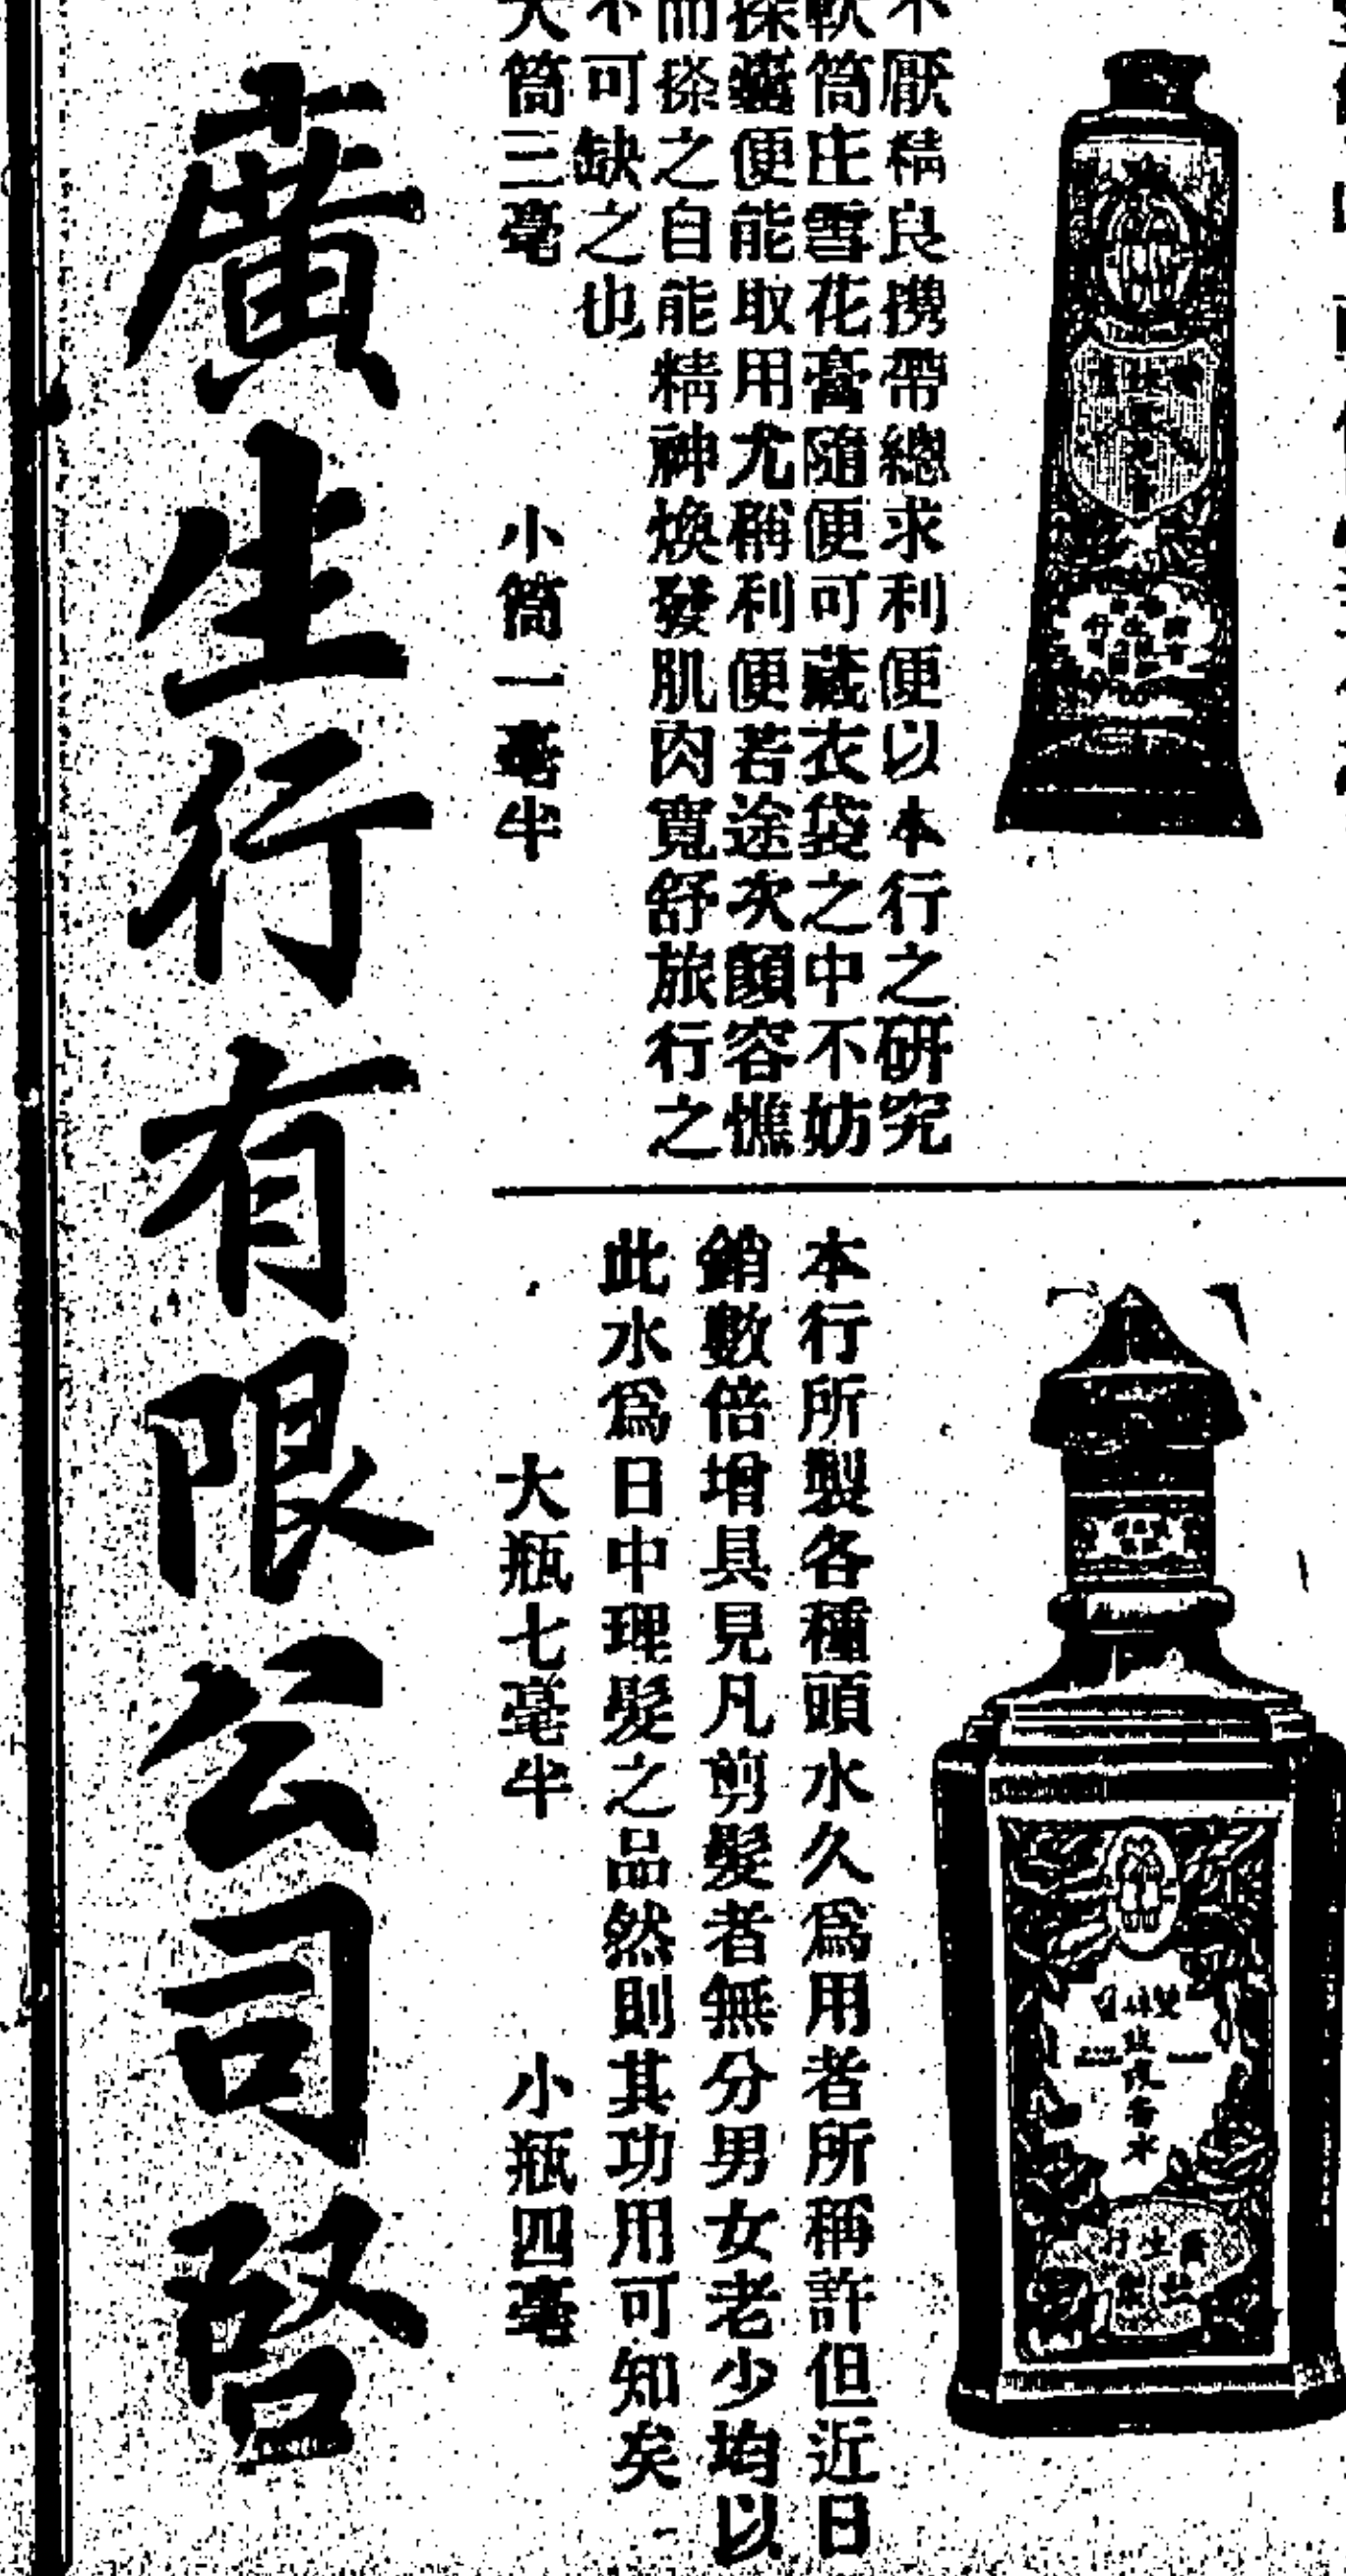 不厭精良携帶總求利便以本行之研究
軟筒庄雪花膏隨便可藏衣袋之中不妨
探囊便能取用尤稱利便若途次顏容憔
而搽之自能精神煥發肌肉寬舒旅行之
不可缺之也
大筒三毫 小筒一毫半
本行所製各種頭水久爲用者所稱許但近日
銷數倍增具見凡剪髮者無分男女老少均以
此水爲日中理髮之品然則其功用可知矣
大瓶七毫半 小瓶四毫
廣生行有限公司啓
雙
香水
廣生行